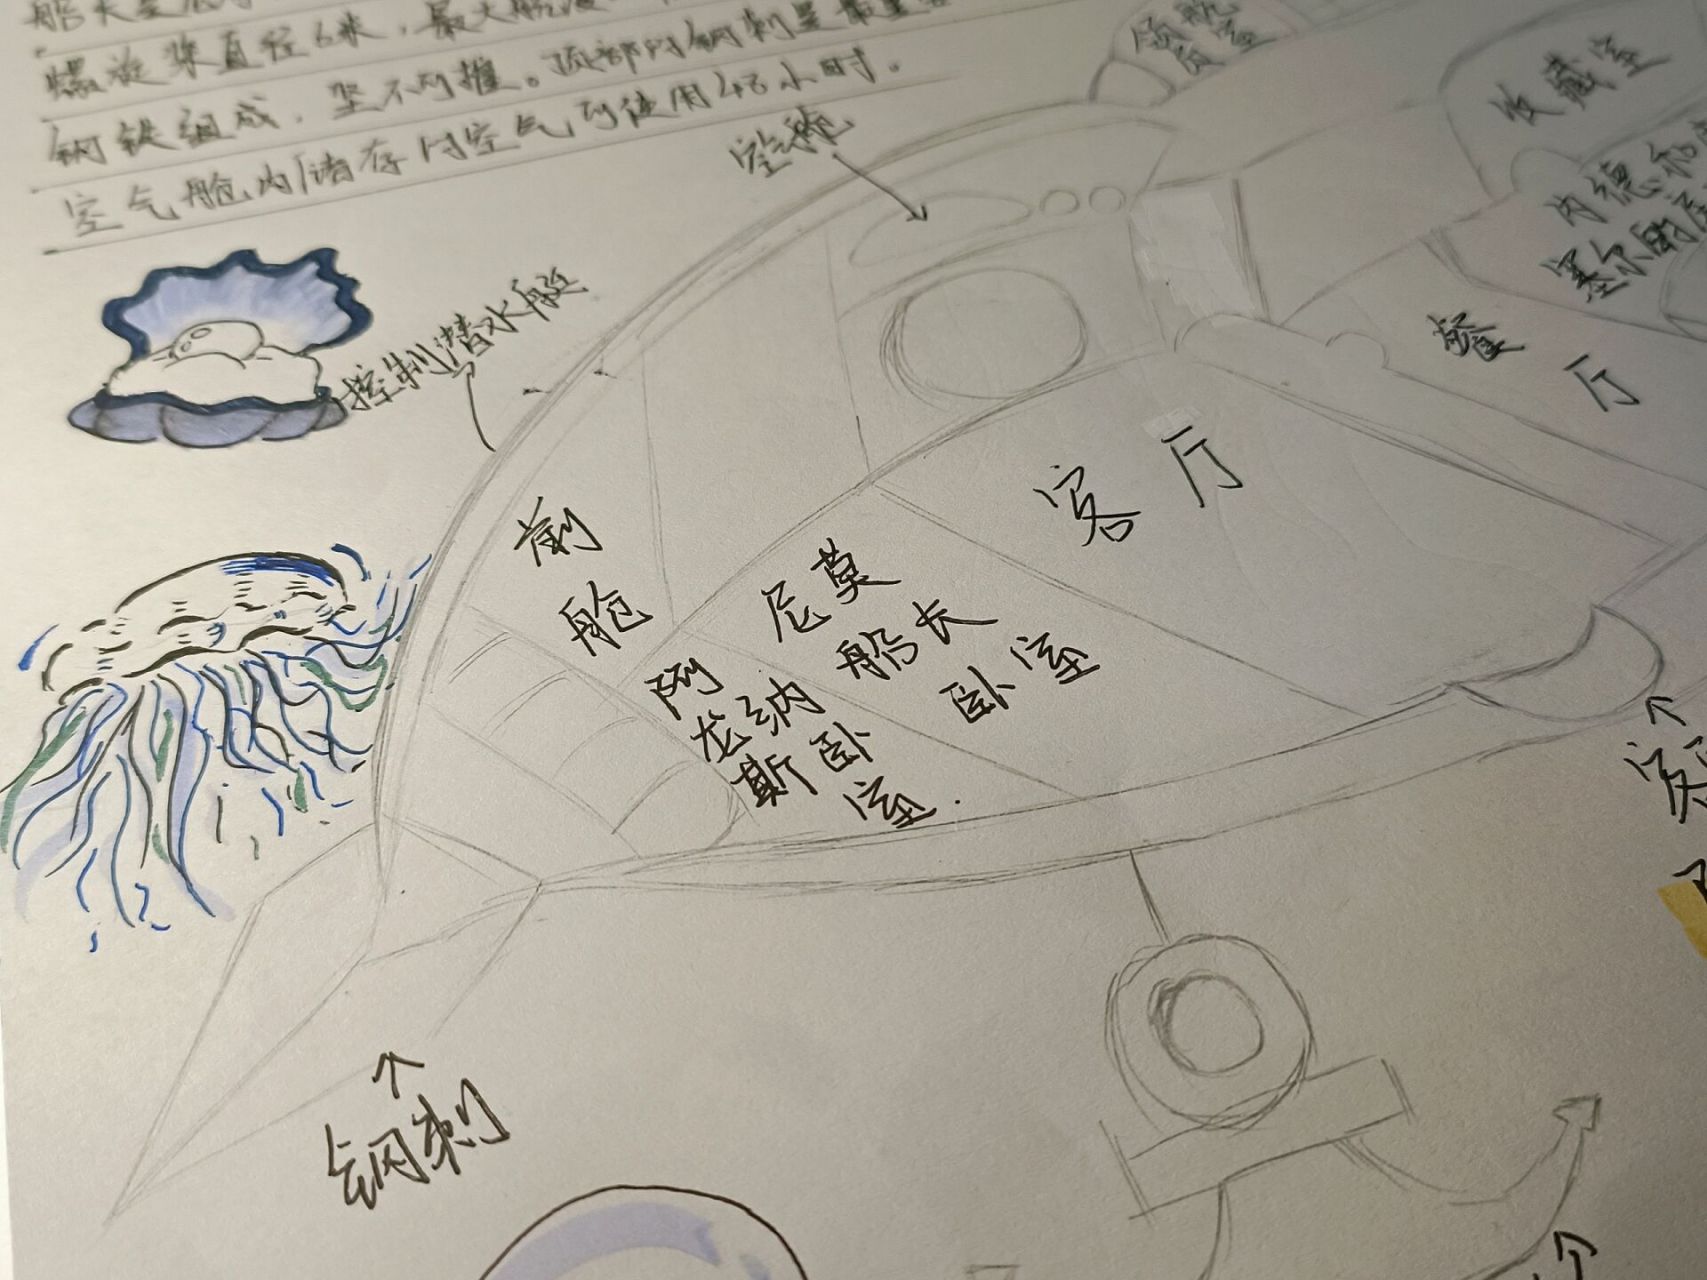 螺旋桨直径6米，最大
钢铁组成，坚不可摧。顶部的钢刺是最
空气舱内储存的空气可使用48小时。
领航
员室
收藏室
控制潜水艇
内德和
塞尔的
餐厅
客厅
前舱
尼莫
船长
卧室
阿
龙纳
斯卧
室.
钢刺